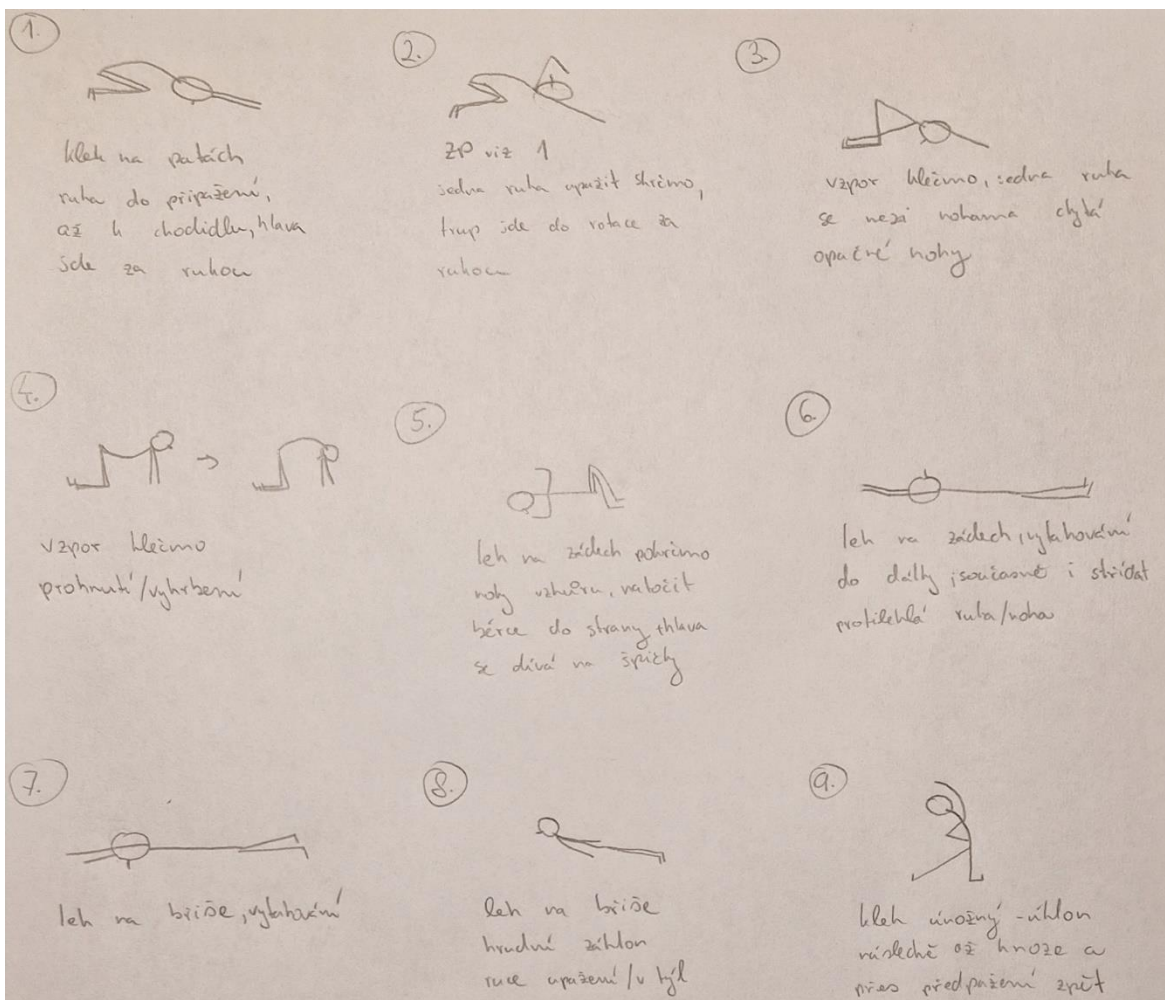 1.
klek na patách
ruka do připažení,
až k chodidlu, hlava
jde za rukou
2.
ZP viz 1
jedna ruka upažit skrčmo,
trup jde do rotace za
rukou
3.
vzpor klečmo, jedna ruka
se mezi nohama chytá
opačné nohy
4.
vzpor klečmo
prohnutí/vyhrbení
5.
leh na zádech pokrčmo
nohy vzhůru, natočit
bérce do strany, hlava
se dívá na špičky
6.
leh na zádech, vytahování
do dálky, současně i střídat
protilehlá ruka/noha
7.
leh na břiše, vytahování
8.
leh na břiše
hrudní záklon
ruce upažení/v týl
9.
klek únožný - úklon
následně až k noze a
přes předpažení zpět